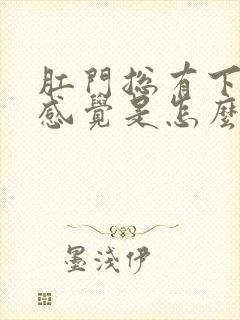 肛門總有下
感覺是怎麼
墨淺伊